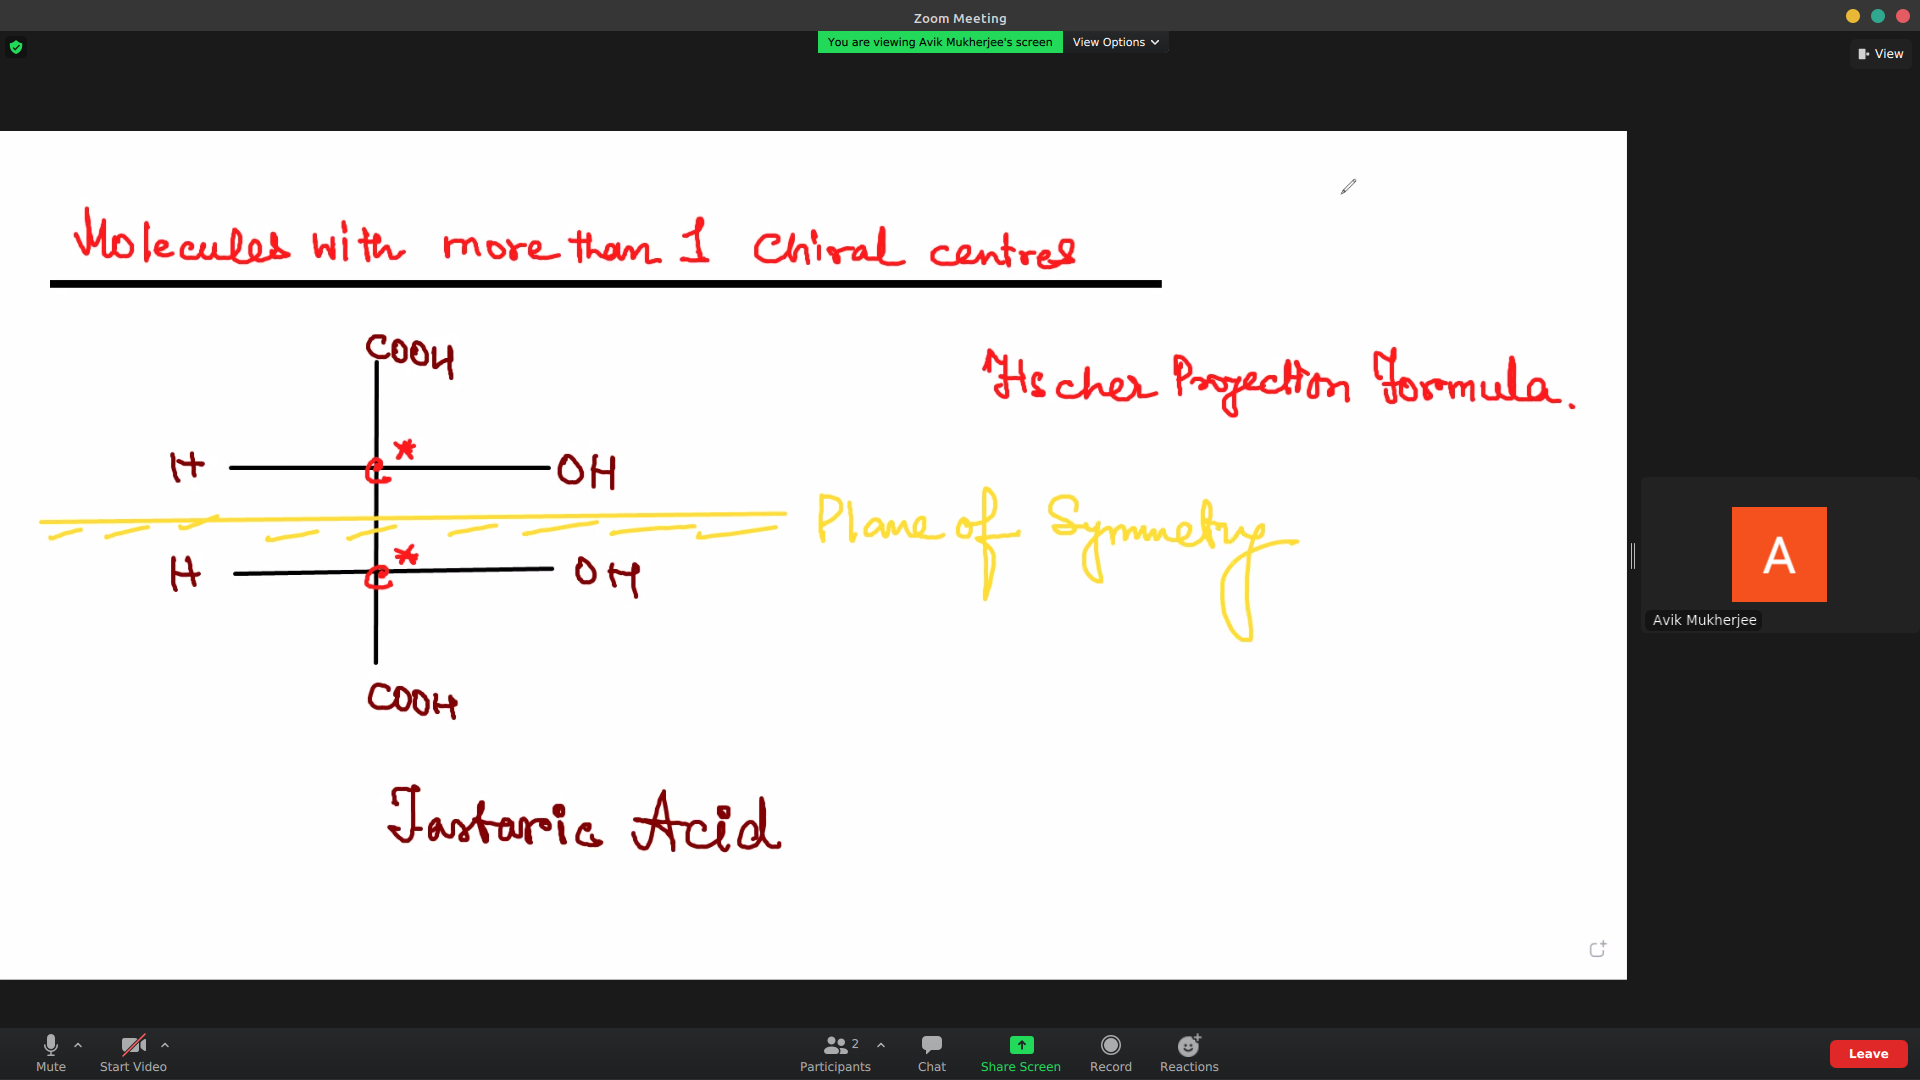 Zoom Meeting
You are viewing Avik Mukherjee's screen View Options
View
Molecules with more than 1 Chiral centres
COOH
Fischer Projection Formula.
H C* OH
Plane of Symmetry
H C* OH
COOH
Tartaric Acid
A
Avik Mukherjee
Mute
Start Video
Participants 2
Chat
Share Screen
Record
Reactions
Leave